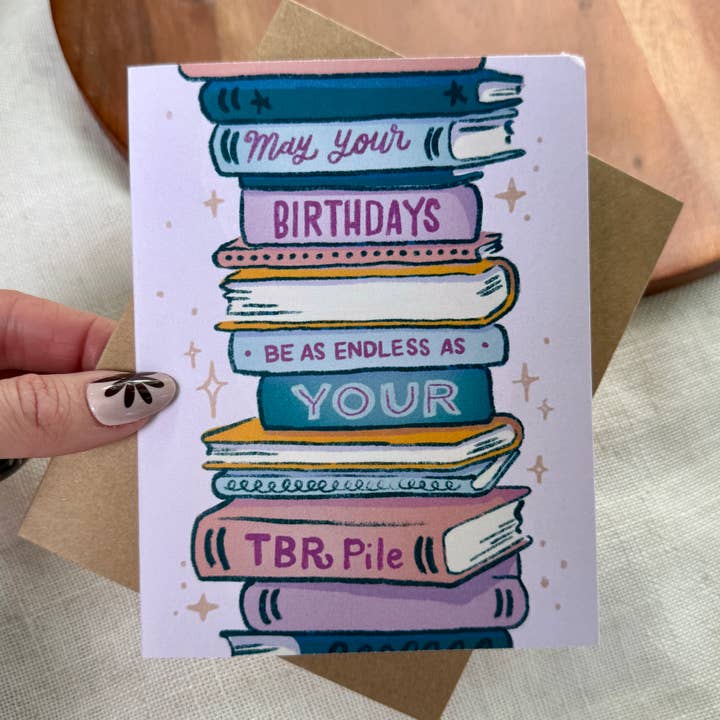 May your
BIRTHDAYS
BE AS ENDLESS AS
YOUR
TBR Pile